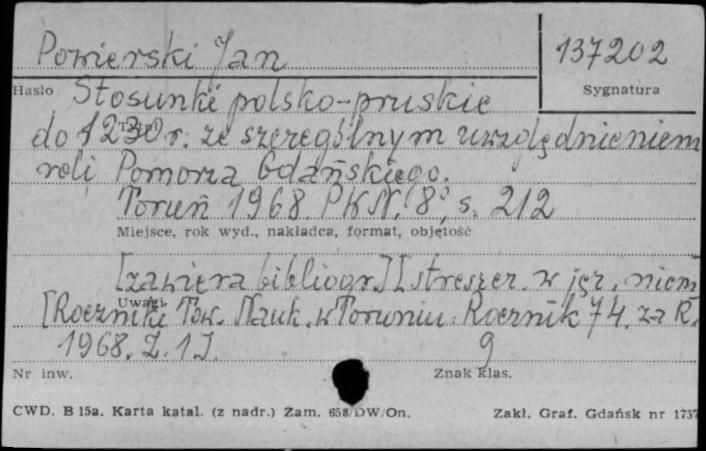 Powierski Jan
137202
Hasło
Sygnatura
Stosunki polsko-pruskie
do 1230 r. ze szczególnym uwzględnieniem
roli Pomorza Gdańskiego.
Toruń 1968 PWN. 8°, s. 212
Miejsce, rok wyd., nakładca, format, objętość
[zawiera bibliogr.] [streszcz. w jęz. niem
Uwagi
[Roczniki Tow. Nauk. w Toruniu. Rocznik 74. za R.
1968. Z. 1].
9
Nr inw.
Znak klas.
CWD. B 15a. Karta katal. (z nadr.) Zam. 658/DW/On.
Zakł. Graf. Gdańsk nr 1757